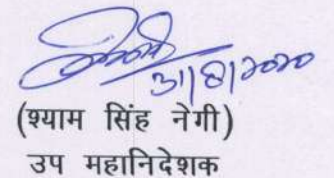 31/8/2020
(श्याम सिंह नेगी)
उप महानिदेशक